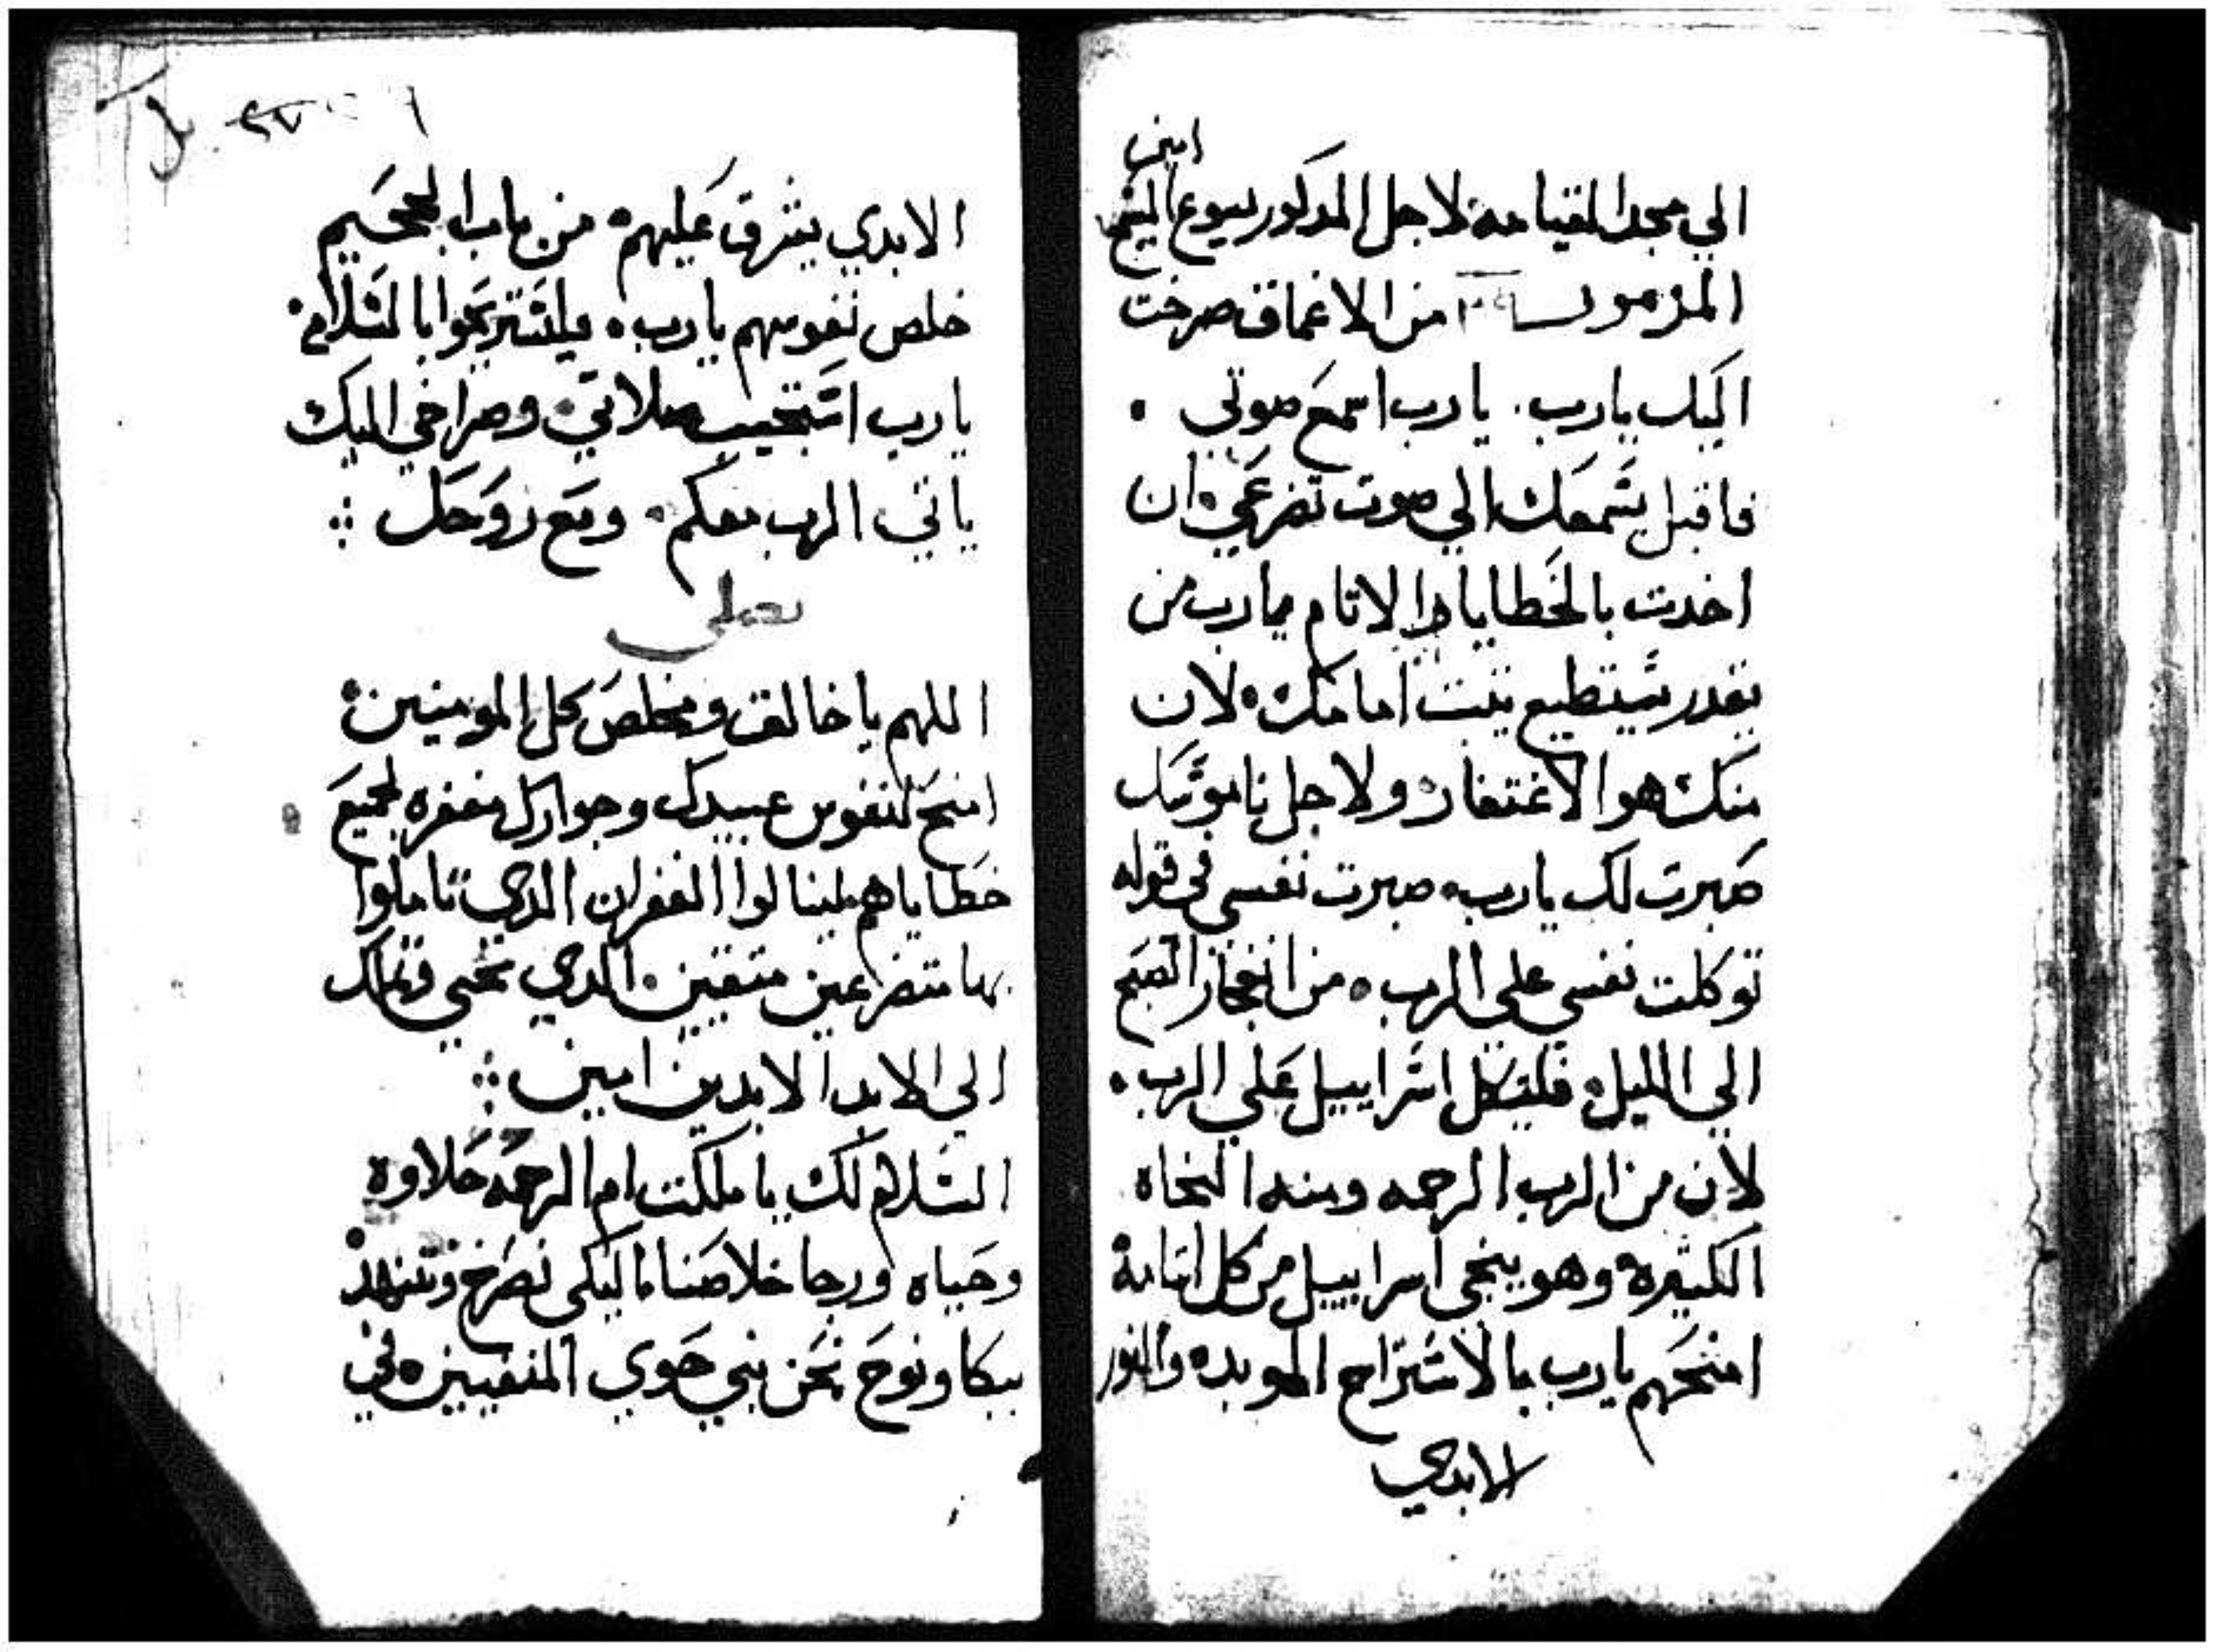 امين
الي مجد القيامه لاجل المدكور يسوع المسيح
المزمور من الاعماق صرخت
اليك يارب. يا رب اسمع صوتي
فاقبل بسمعك الي صوت تضرعي ان
اخدت بالخطايا والاتام يارب من
يقدر يستطيع يتبت امامك لان
منك هو الاغتفار ولاجل ناموسك
صبرت لك يارب صبرت نفسي في قوله
توكلت نفسي علي الرب من انفجار الصبح
الي الليل فليتكل اسراييل علي الرب
لان من الرب الرحمه ومنه النجاه
الكتيره وهو ينجي اسراييل من كل اتامه
امنحهم يارب بالاستراح الموبده والنور
الابدي
٢٧
الابدي يشرق عليهم من باب الجحيم
خلص نفوسهم يارب فليستريحوا بالسلامه
يارب استجيب صلاتي وصراخي اليك
ياتي الرب معكم ومع روحك
نصلي
اللهم يا خالق ومخلص كل المومنين
امنح لنفوس عبيدك وجوارك مغفره لجميع
خطاياهم لينالوا الغفران الدي تاملوا
بها متضرعين متقين الدي تحيي وتملك
الي الابد الابدين امين
السلام لك يا ملكت ام الرحمه حلاوه
وحياه ورجا خلاصنا اليكي نصرخ ونتنهد
ببكا ونوح نحن بني حوي المنفيين في